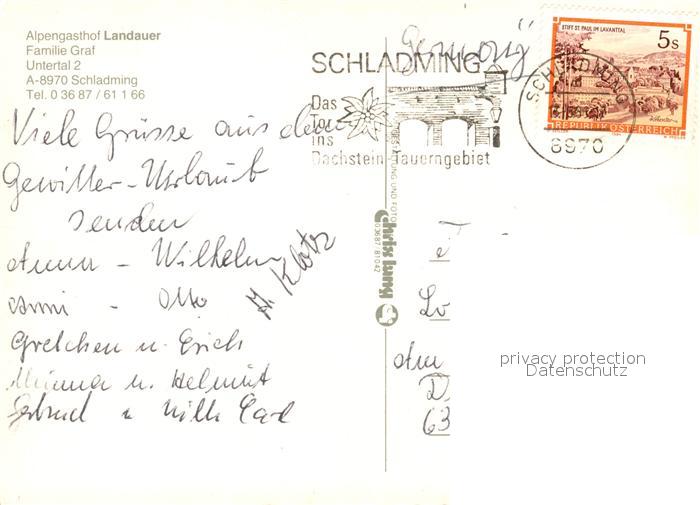 Alpengasthof Landauer
Familie Graf
Untertal 2
A-8970 Schladming
Tel. 0 36 87 / 61 1 66
SCHLADMING
Das
Tor
ins
Dachstein-Tauerngebiet
STIFT ST. PAUL IM LAVANTTAL
5s
REPUBLIK ÖSTERREICH
SCHLADMING
8970
Viele Grüsse aus dem
Gewitter-Urlaub
senden
Anna - Wilhelm
Anni - Otto
A. Klotz
Gretchen u. Erich
Minna u. Helmut
Gertrud u Willi Carl
chris lang
03687/81042
Am
D
63
privacy protection
Datenschutz